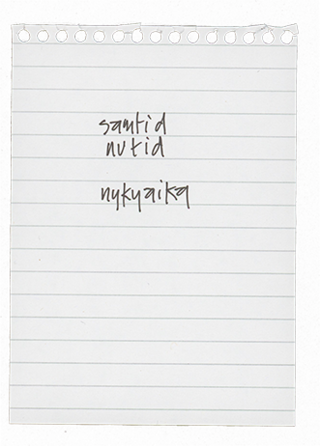 samtid
nutid
nykyaika